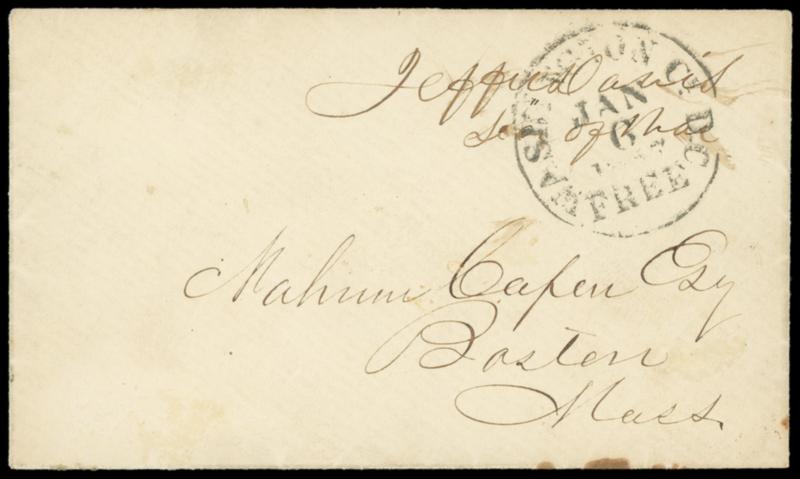 Jeffer Davis
Sec of War
WASHINGTON C. D.C.
JAN
6
FREE
Nahum Capen Esq
Boston
Mass.